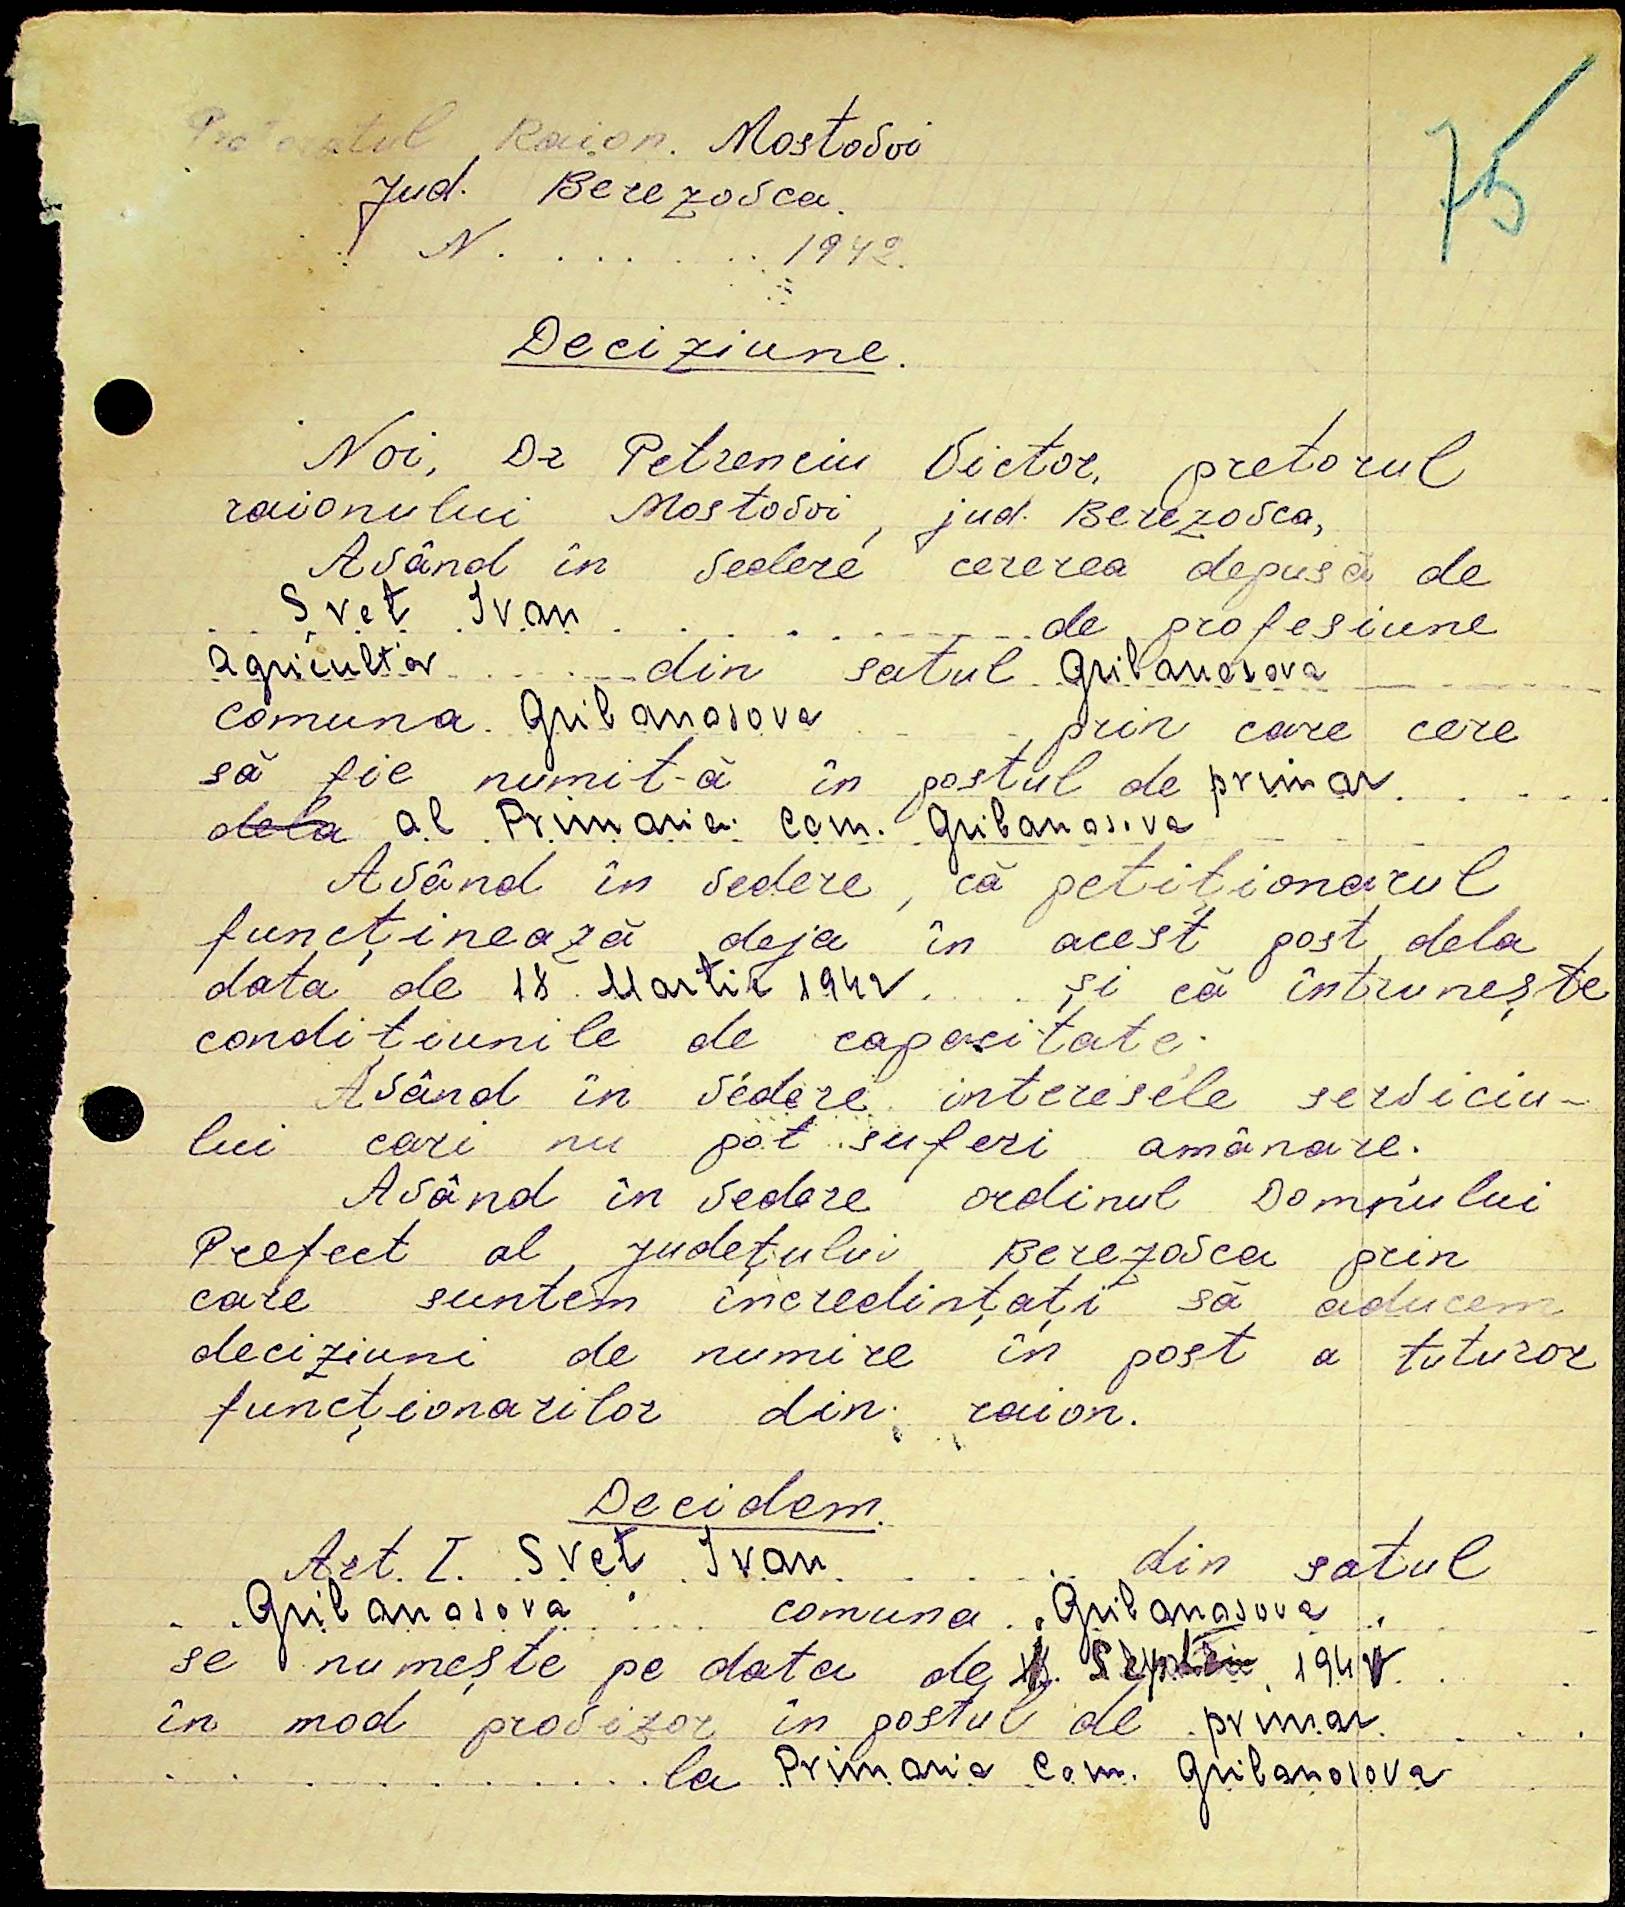 Pretoratul Raion. Mostovoi
Jud. Berezovca.
N. . . . . . . . 1942.
75
Deciziune.
Noi, Dr Petrenciu Victor, pretorul
raionului Mostovoi, jud. Berezovca,
Având în vedere cererea depusă de
Svet Ivan . . . . . de profesiune
agricultor . . . . din satul Gribanosova
comuna. Gribanosova . . . prin care cere
să fie numit-ă în postul de primar . . . .
dela al Primaria com. Gribanosova
Având în vedere, că petiţionarul
funcţinează deja în acest post dela
data de 18 Martie 1942 . . . şi că întruneşte
condiţiunile de capacitate.
Având în vedere interesele serviciu-
lui cari nu pot suferi amânare.
Având în vedere ordinul Domnului
Prefect al judeţului Berezovca prin
care suntem incredinţaţi să aducem
deciziuni de numire în post a tuturor
funcţionarilor din raion.
Decidem.
Art. I. Svet Ivan . . . . . din satul
. . Gribanosova . . . comuna . Gribanosova .
se numeşte pe data de 1942 . .
în mod provizor în postul de primar . . . .
. . . . . . . . . . la Primaria Com. Gribanosova